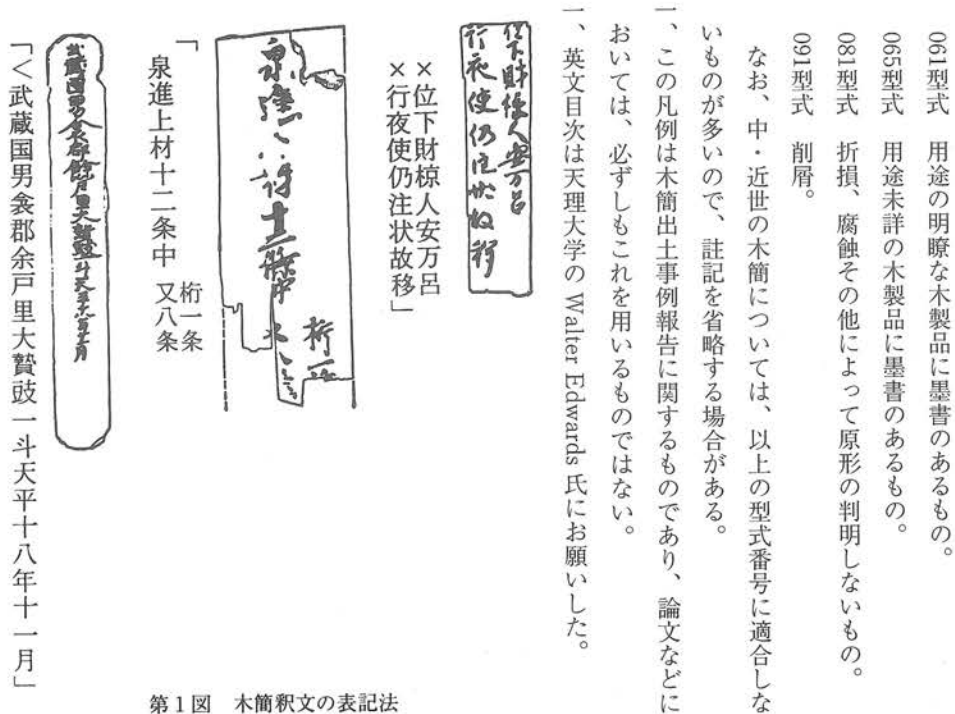 061型式　用途の明瞭な木製品に墨書のあるもの。
065型式　用途未詳の木製品に墨書のあるもの。
081型式　折損、腐蝕その他によって原形の判明しないもの。
091型式　削屑。
なお、中・近世の木簡については、以上の型式番号に適合しな
いものが多いので、註記を省略する場合がある。
一、この凡例は木簡出土事例報告に関するものであり、論文などに
おいては、必ずしもこれを用いるものではない。
一、英文目次は天理大学の Walter Edwards 氏にお願いした。
位下財椋人安万呂
行夜使仍注状故移
×位下財椋人安万呂
×行夜使仍注状故移」
泉進上材十二条中
桁一条
又八条
「泉進上材十二条中　桁一条
又八条
武蔵国男衾郡余戸里大贄豉一斗天平十八年十一月
「＜武蔵国男衾郡余戸里大贄豉一斗天平十八年十一月」
第1図　木簡釈文の表記法